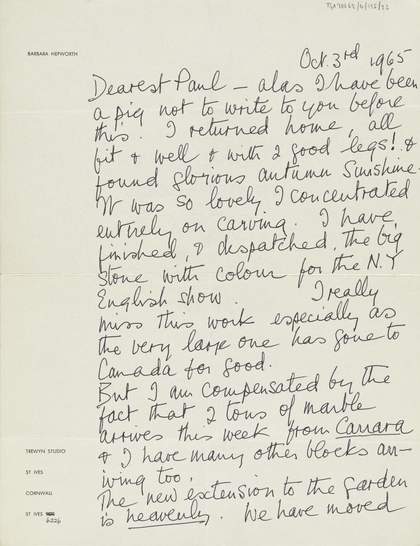 BARBARA HEPWORTH
Oct. 3rd 1965
Dearest Paul — alas I have been
a pig not to write to you before
this. I returned home, all
fit & well & with 2 good legs! &
found glorious autumn sunshine.
It was so lovely I concentrated
entirely on carving. I have
finished, & despatched, the big
stone with colour for the N.Y
English show. I really
miss this work especially as
the very large one has gone to
Canada for good.
But I am compensated by the
fact that 2 tons of marble
arrives this week from Carrara
& I have many other blocks arr-
iving too.
The new extension to the garden
is heavenly. We have moved
TREWYN STUDIO
ST IVES
CORNWALL
ST IVES
6226